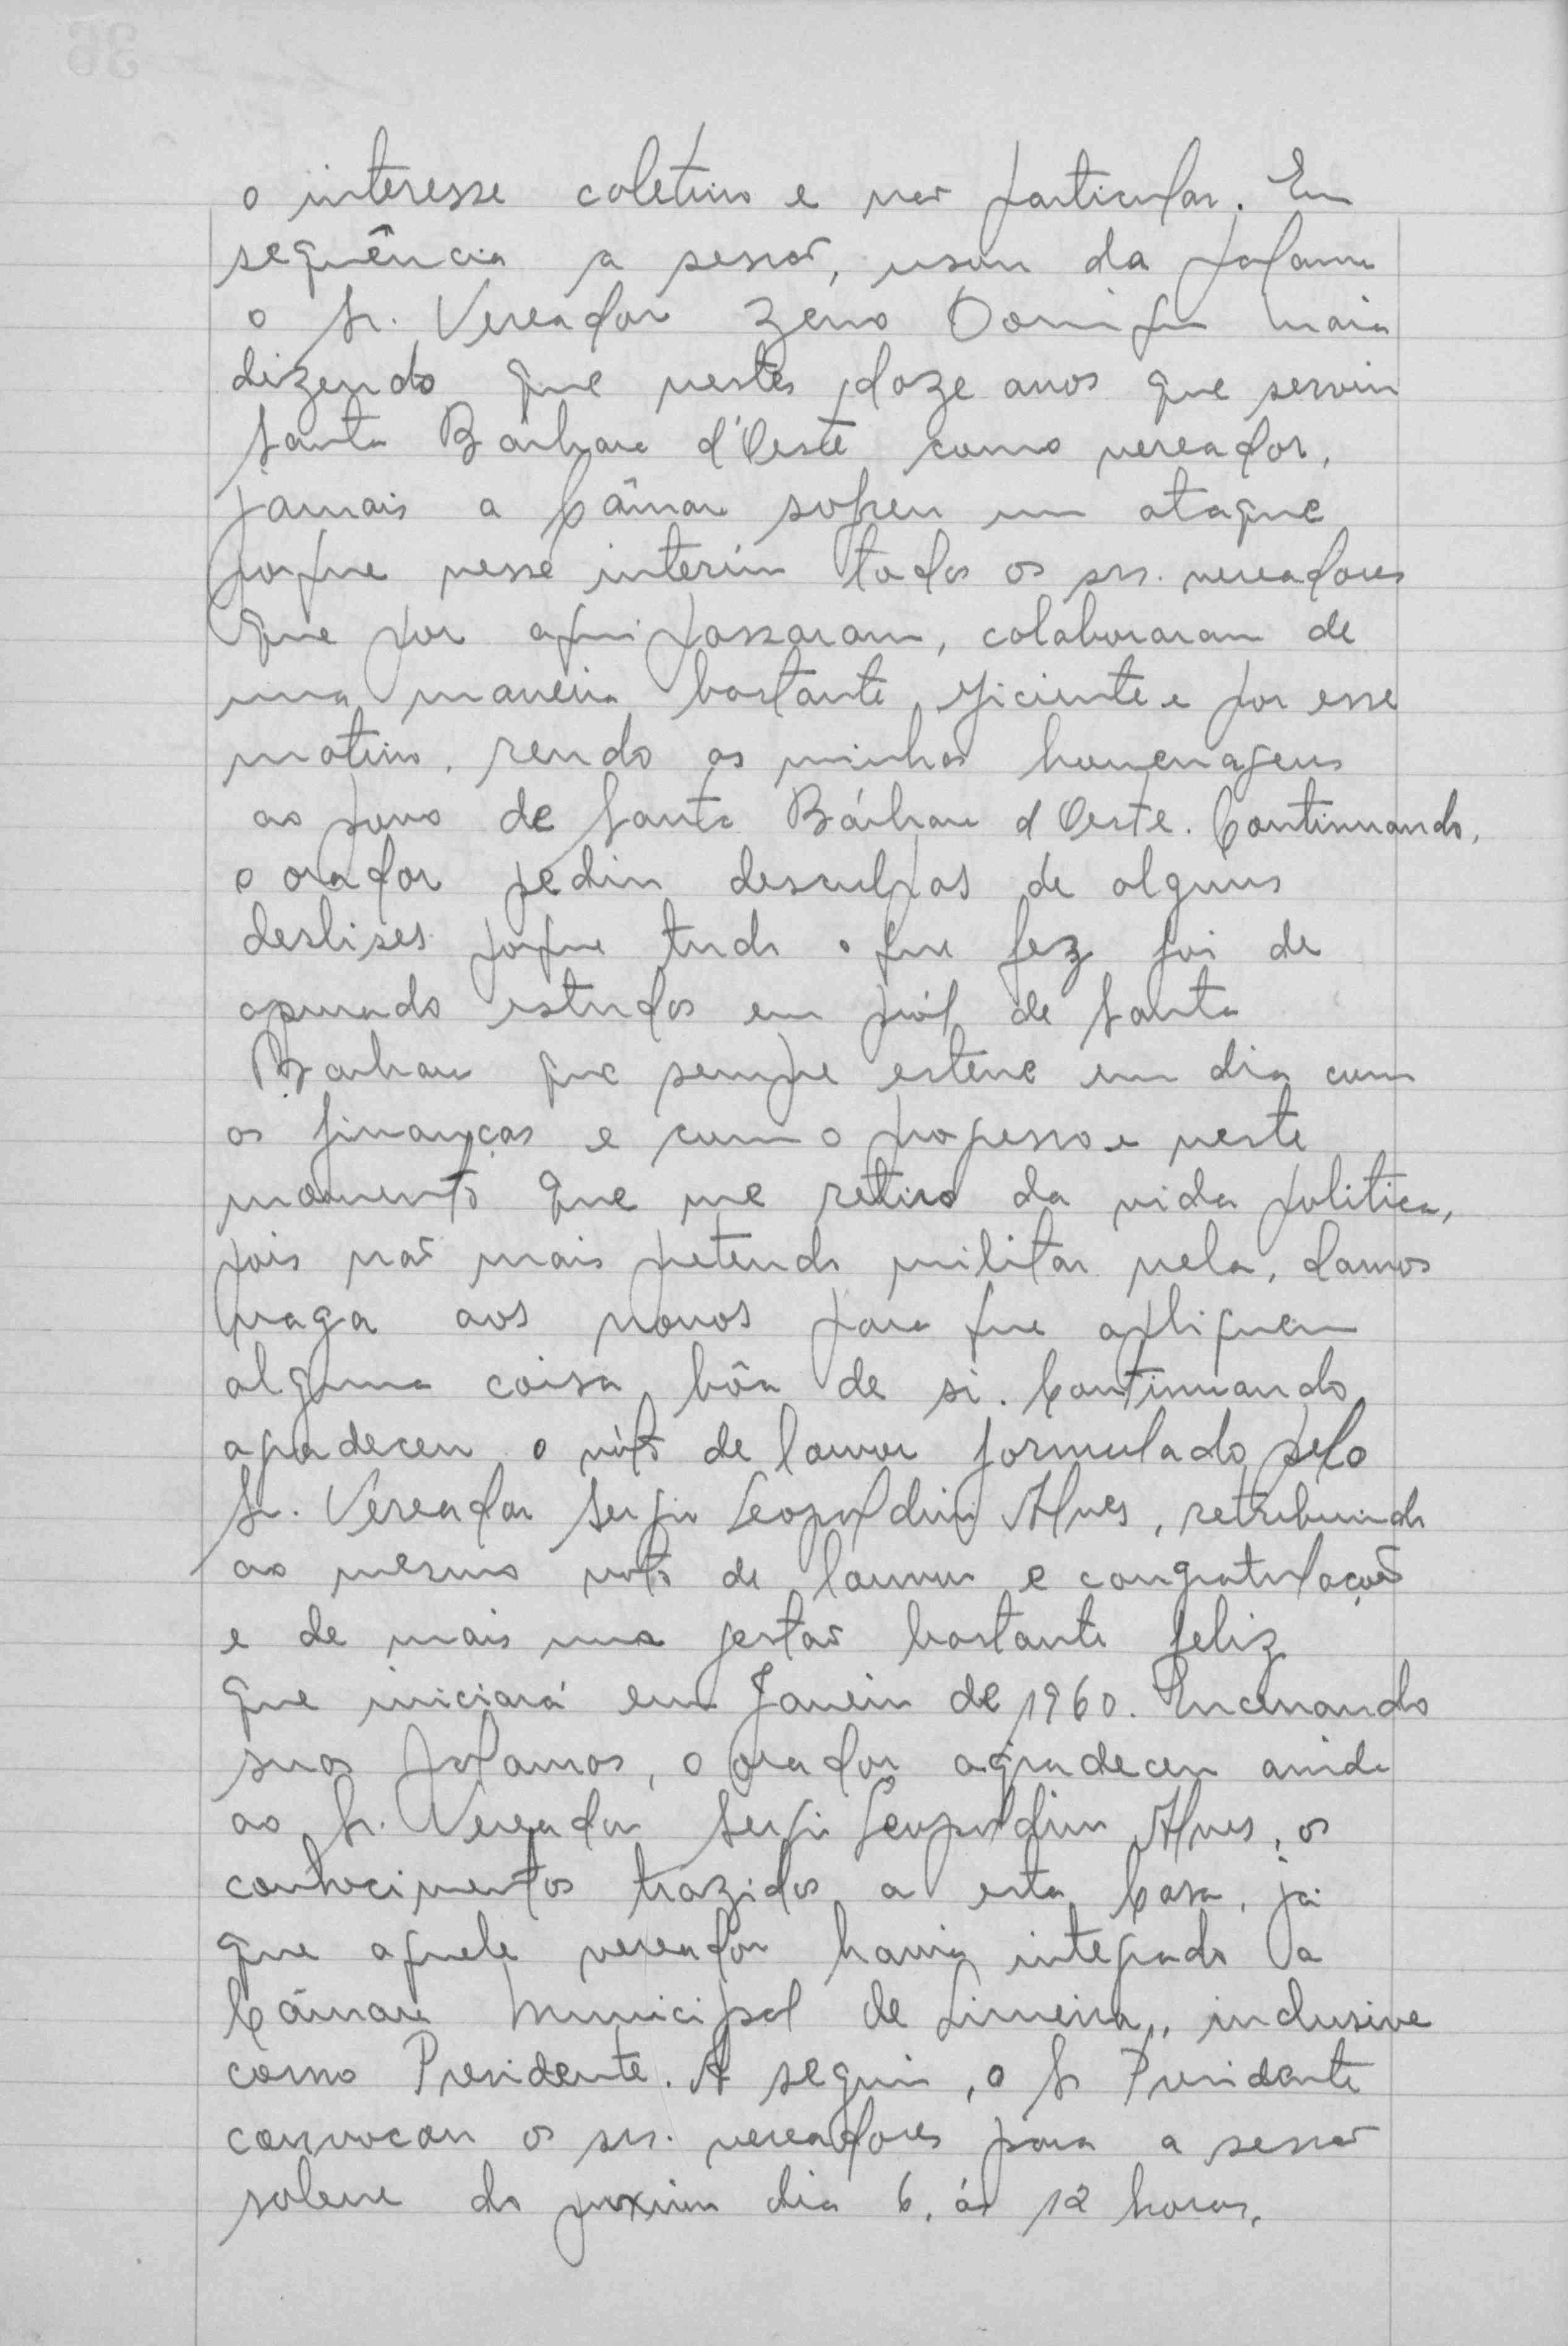 o interesse coletivo e não particular. Em
sequência a sessão, usou da palavra
o Sr. Vereador Zeno Domingues Maia
dizendo que nestes doze anos que serviu
Santa Bárbara d'Oeste como vereador,
jamais a Câmara sofreu um ataque
porque nesse interím todos os srs. vereadores
que por aqui passaram, colaboraram de
uma maneira bastante eficiente e por esse
motivo, rendo as minhas homenagens
ao povo de Santa Bárbara d'Oeste. Continuando,
o orador pediu desculpas de alguns
deslises porque tudo o que fez foi de
apurado estudos em pról de Santa
Barbara que sempre esteve em dia com
as finanças e com o progresso e neste
momento que me retiro da vida politica,
pois não mais pretendo militar nela, damos
vaga aos novos para que apliquem
alguma coisa bôa de si. Continuando
agradeceu o vóto de louvor formulado pelo
Sr. Vereador Sergio Leopoldino Alves, retribuindo
ao mesmo voto de louvor e congratulações
e de mais uma gestão bastante feliz
que iniciará em Janeiro de 1960. Encerrando
suas palavras, o orador agradeceu ainda
ao Sr. Vereador Sergio Leopoldino Alves, os
conhecimentos trazidos a esta Casa, já
que aquele vereador havia integrado a
Câmara Municipal de Limeira, inclusive
como Presidente. A seguir, o Sr Presidente
convocou os srs. vereadores para a sessão
solene do proximo dia 6, ás 12 horas,